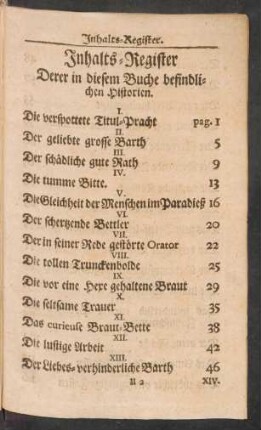 Inhalts-Register.
Inhalts-Register
Derer in diesem Buche befindli-
chen Historien.
I.
Die verspottete Titul-Pracht pag. 1
II.
Der geliebte grosse Barth 5
III.
Der schädliche gute Rath 9
IV.
Die tumme Bitte. 13
V.
Die Gleichheit der Menschen im Paradieß 16
VI.
Der schertzende Bettler 20
VII.
Der in seiner Rede gestörte Orator 22
VIII.
Die tollen Trunckenbolde 25
IX.
Die vor eine Hexe gehaltene Braut 29
X.
Die seltsame Trauer 35
XI.
Das curieuse Braut-Bette 38
XII.
Die lustige Arbeit 42
XIII.
Der Liebes-verhinderliche Barth 46
XIV.